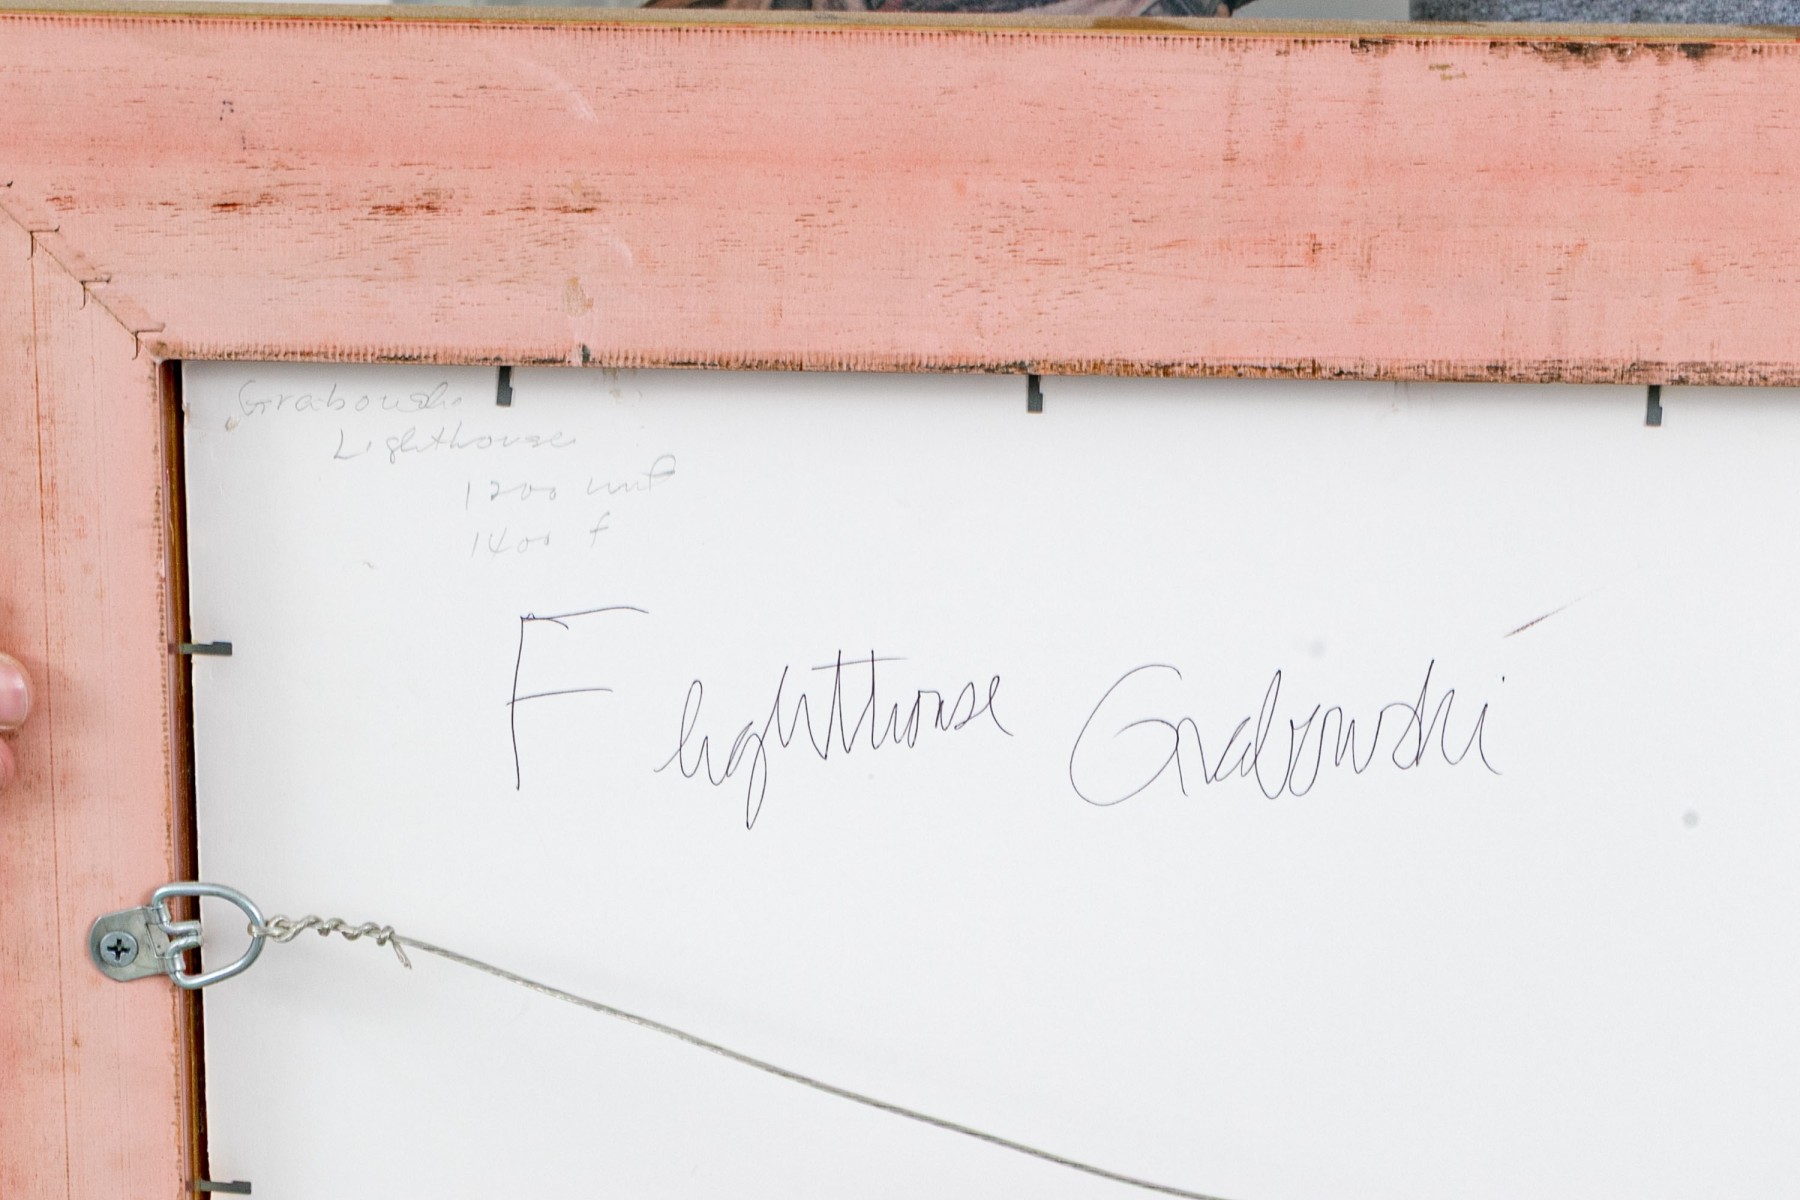 Grabowski
Lighthouse
1200 unf
1400 f
F lighthouse Grabowski